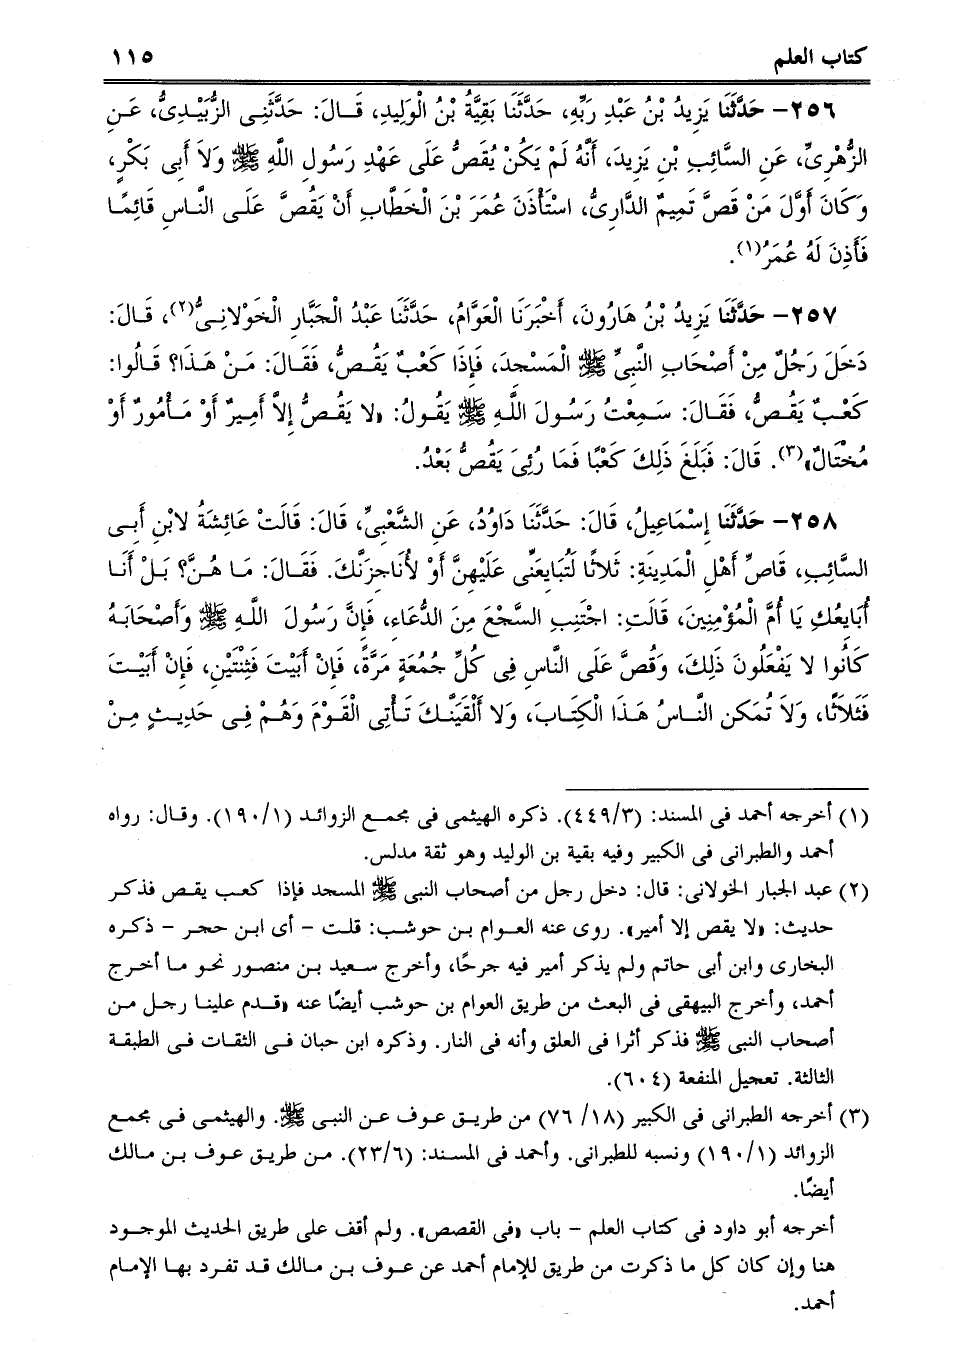 كتاب العلم ١١٥
٢٥٦- حَدَّثَنَا يَزِيدُ بْنُ عَبْدِ رَبِّهِ، حَدَّثَنَا بَقِيَّةُ بْنُ الْوَلِيدِ، قَالَ: حَدَّثَنِى الزُّبَيْدِىُّ، عَنِ
الزُّهْرِىِّ، عَنِ السَّائِبِ بْنِ يَزِيدَ، أَنَّهُ لَمْ يَكُنْ يُقَصُّ عَلَى عَهْدِ رَسُولِ اللَّهِ ﷺ وَلاَ أَبِى بَكْرٍ،
وَكَانَ أَوَّلَ مَنْ قَصَّ تَمِيمٌ الدَّارِىُّ، اسْتَأْذَنَ عُمَرَ بْنَ الْخَطَّابِ أَنْ يَقُصَّ عَلَى النَّاسِ قَائِمًا
فَأَذِنَ لَهُ عُمَرُ(١).
٢٥٧- حَدَّثَنَا يَزِيدُ بْنُ هَارُونَ، أَخْبَرَنَا الْعَوَّامُ، حَدَّثَنَا عَبْدُ الْجَبَّارِ الْخَوْلاَنِىُّ(٢)، قَالَ:
دَخَلَ رَجُلٌ مِنْ أَصْحَابِ النَّبِىِّ ﷺ الْمَسْجِدَ، فَإِذَا كَعْبٌ يَقُصُّ، فَقَالَ: مَنْ هَذَا؟ قَالُوا:
كَعْبٌ يَقُصُّ، فَقَالَ: سَمِعْتُ رَسُولَ اللَّهِ ﷺ يَقُولُ: «لا يَقُصُّ إِلاَّ أَمِيرٌ أَوْ مَأْمُورٌ أَوْ
مُخْتَالٌ»(٣). قَالَ: فَبَلَغَ ذَلِكَ كَعْبًا فَمَا رُئِىَ يَقُصُّ بَعْدُ.
٢٥٨- حَدَّثَنَا إِسْمَاعِيلُ، قَالَ: حَدَّثَنَا دَاوُدُ، عَنِ الشَّعْبِىِّ، قَالَ: قَالَتْ عَائِشَةُ لابْنِ أَبِى
السَّائِبِ، قَاصِّ أَهْلِ الْمَدِينَةِ: ثَلاَثًا لَتُبَايِعَنِّى عَلَيْهِنَّ أَوْ لأُنَاجِزَنَّكَ. فَقَالَ: مَا هُنَّ؟ بَلْ أَنَا
أُبَايِعُكِ يَا أُمَّ الْمُؤْمِنِينَ، قَالَتِ: اجْتَنِبِ السَّجْعَ مِنَ الدُّعَاءِ، فَإِنَّ رَسُولَ اللَّهِ ﷺ وَأَصْحَابَهُ
كَانُوا لا يَفْعَلُونَ ذَلِكَ، وَقُصَّ عَلَى النَّاسِ فِى كُلِّ جُمُعَةٍ مَرَّةً، فَإِنْ أَبَيْتَ فَثِنْتَيْنِ، فَإِنْ أَبَيْتَ
فَثَلاَثًا، وَلاَ تُمَكن النَّاسُ هَذَا الْكِتَابَ، وَلا أَلْقَيَنَّكَ تَأْتِى الْقَوْمَ وَهُمْ فِى حَدِيثٍ مِنْ
(١) أخرجه أحمد فى المسند: (٤٤٩/٣). ذكره الهيثمى فى مجمع الزوائد (١٩٠/١). وقال: رواه
أحمد والطبرانى فى الكبير وفيه بقية بن الوليد وهو ثقة مدلس.
(٢) عبد الجبار الخولانى: قال: دخل رجل من أصحاب النبى ﷺ المسجد فإذا كعب يقص فذكر
حديث: «لا يقص إلا أمير». روى عنه العوام بن حوشب: قلت - أى ابن حجر - ذكره
البخارى وابن أبى حاتم ولم يذكر أمير فيه جرحًا، وأخرج سعيد بن منصور نحو ما أخرج
أحمد، وأخرج البيهقى فى البعث من طريق العوام بن حوشب أيضًا عنه «قدم علينا رجل من
أصحاب النبى ﷺ فذكر أثرا فى العلق وأنه فى النار. وذكره ابن حبان فى الثقات فى الطبقة
الثالثة. تعجيل المنفعة (٦٠٤).
(٣) أخرجه الطبرانى فى الكبير (١٨/ ٧٦) من طريق عوف عن النبى ﷺ. والهيثمى فى مجمع
الزوائد (١٩٠/١) ونسبه للطبرانى. وأحمد فى المسند: (٢٣/٦). من طريق عوف بن مالك
أيضًا.
أخرجه أبو داود فى كتاب العلم - باب «فى القصص». ولم أقف على طريق الحديث الموجود
هنا وإن كان كل ما ذكرت من طريق للإمام أحمد عن عوف بن مالك قد تفرد بها الإمام
أحمد.